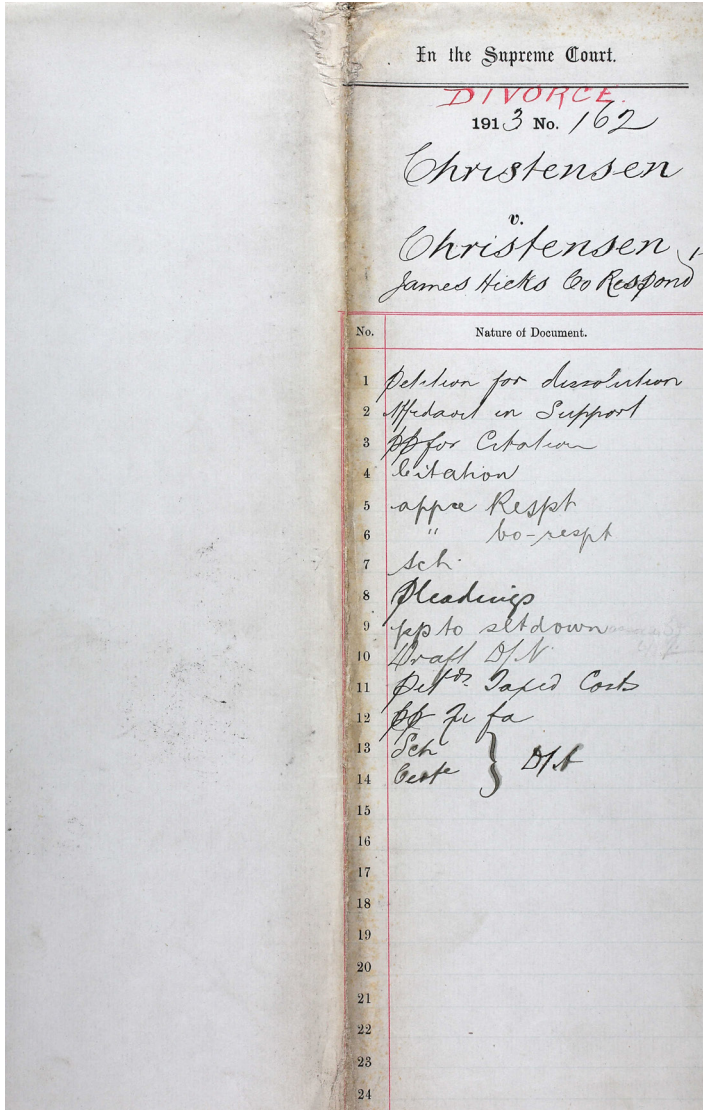 In the Supreme Court.
DIVORCE.
1913 No. 162
Christensen
v.
Christensen
James Hicks Co Respond
No. Nature of Document.
1 Petition for dissolution
2 Affidavit in Support
3 pp for Citation
4 Citation
5 appce Respt
6 " Co-respt
7 Sch.
8 Pleadings
9 pp to setdown
10 Draft D/N
11 Petrs Taxed Costs
12 pp Fi fa
13 Sch } D/A
14 Certe
15
16
17
18
19
20
21
22
23
24